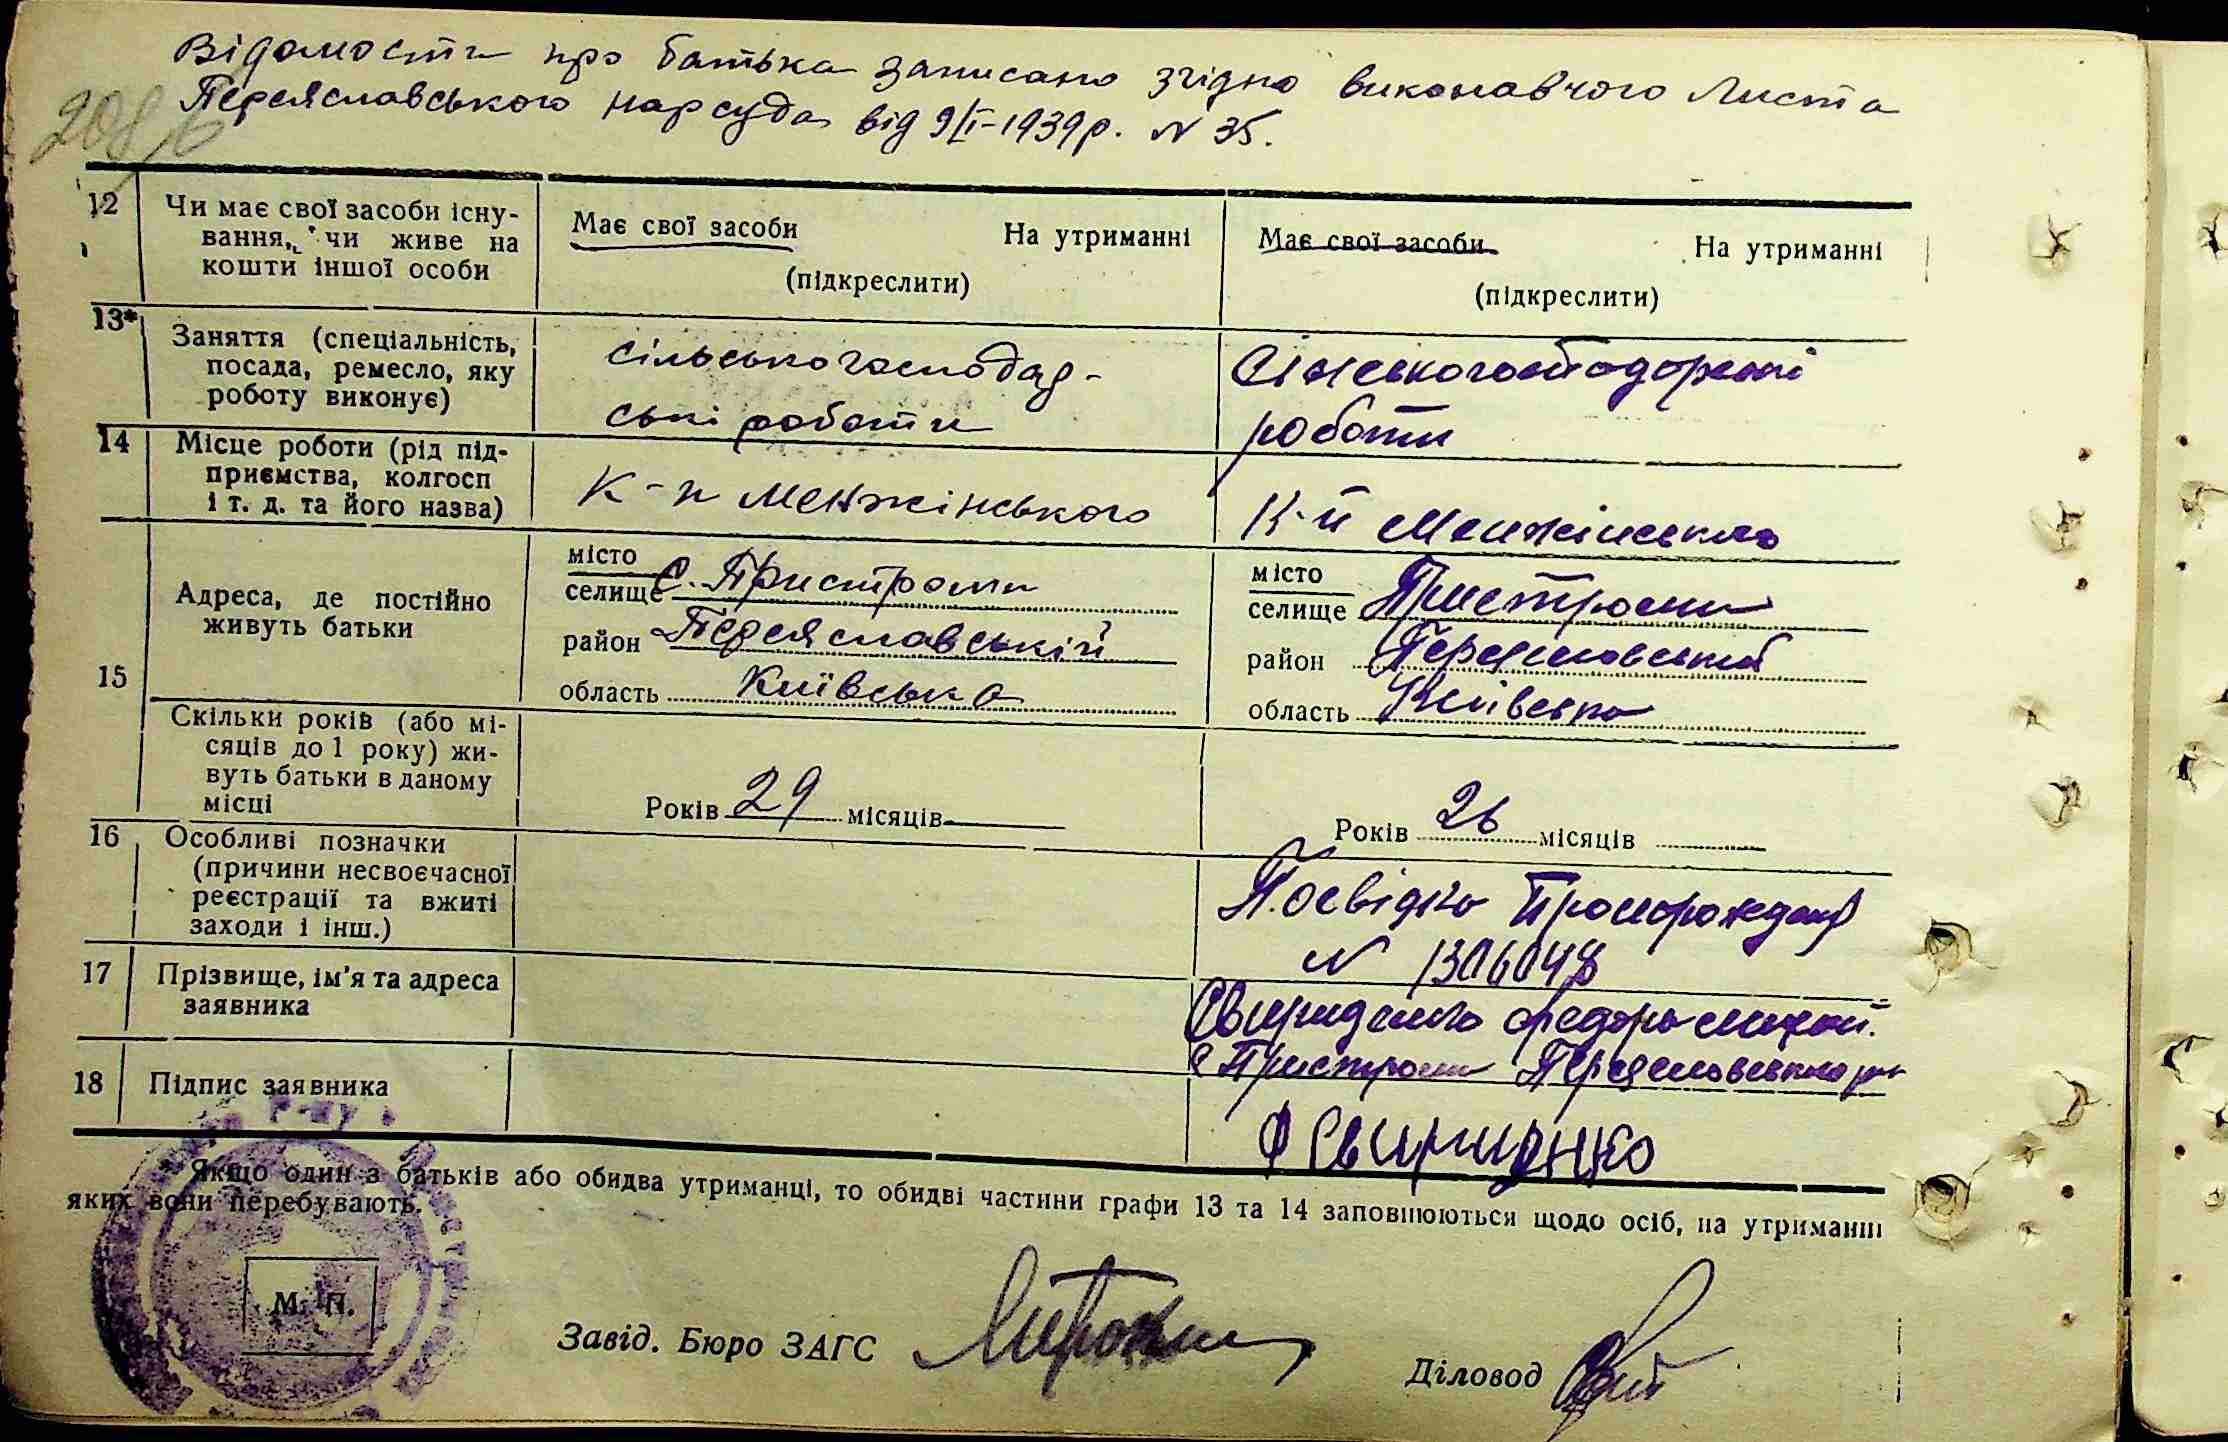 Відомости про батька записано згідно виконавчого листа
Переяславського нарсуда від 9/I-1939р. N 35.
12
Чи має свої засоби існу-
вання, чи живе на
кошти іншої особи
Має свої засоби На утриманні
(підкреслити)
Має свої засоби На утриманні
(підкреслити)
13*
Заняття (спеціальність,
посада, ремесло, яку
роботу виконує)
сільськогосподар-
ські роботи
Сільськогосподорські
роботи
14
Місце роботи (рід під-
приємства, колгосп
і т. д. та його назва)
К-п Менжінського
К-п Менжінського
15
Адреса, де постійно
живуть батьки
місто
селище С. Пристроми
район Переяславській
область Київська
місто
селище Пристроми
район Переяславський
область Київська
Скільки років (або мі-
сяців до 1 року) жи-
вуть батьки в даному
місці
Років 29 місяців
Років 26 місяців
16
Особливі позначки
(причини несвоєчасної
реєстрації та вжиті
заходи і інш.)
Посвідка
N 1306048
17
Прізвище, ім'я та адреса
заявника
Свириденко Федора
с Пристроми Переяславського р-н
18
Підпис заявника
Ф Свириденко
* Якщо один з батьків або обидва утриманці, то обидві частини графи 13 та 14 заповнюються щодо осіб, на утриманні
яких вони перебувають.
М. П.
Завід. Бюро ЗАГС
Діловод